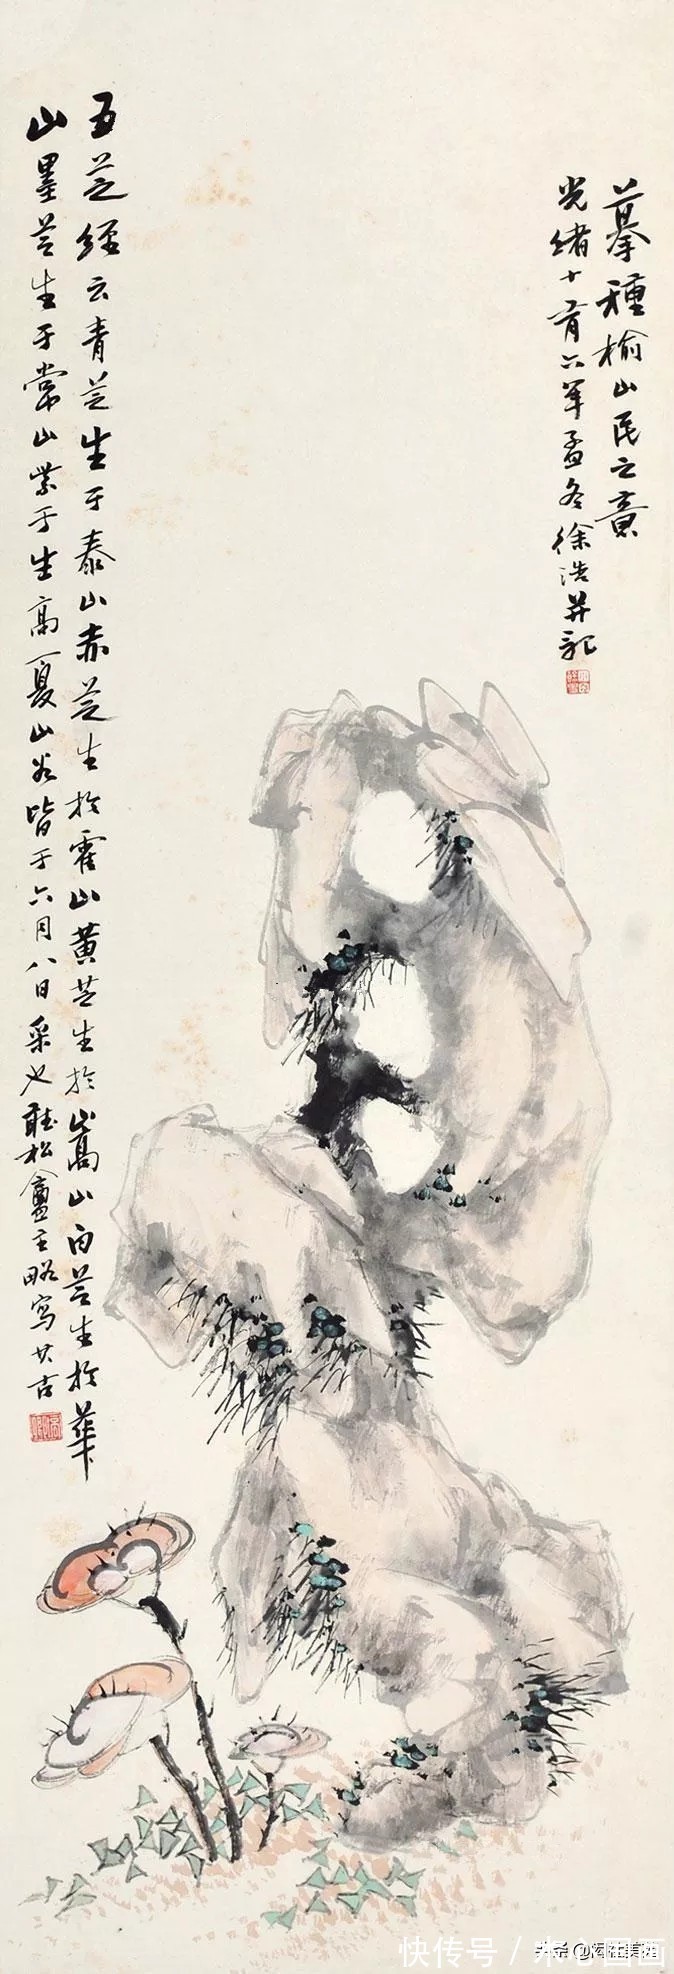 摹種榆山民之意
光緒十有六年孟冬徐浩并記
五芝經云青芝生于泰山赤芝生於霍山黃芝生於嵩山白芝生於華
山墨芝生于常山紫于生高夏山谷皆于六月八日采也聽松盦主略寫其吉
快传号/